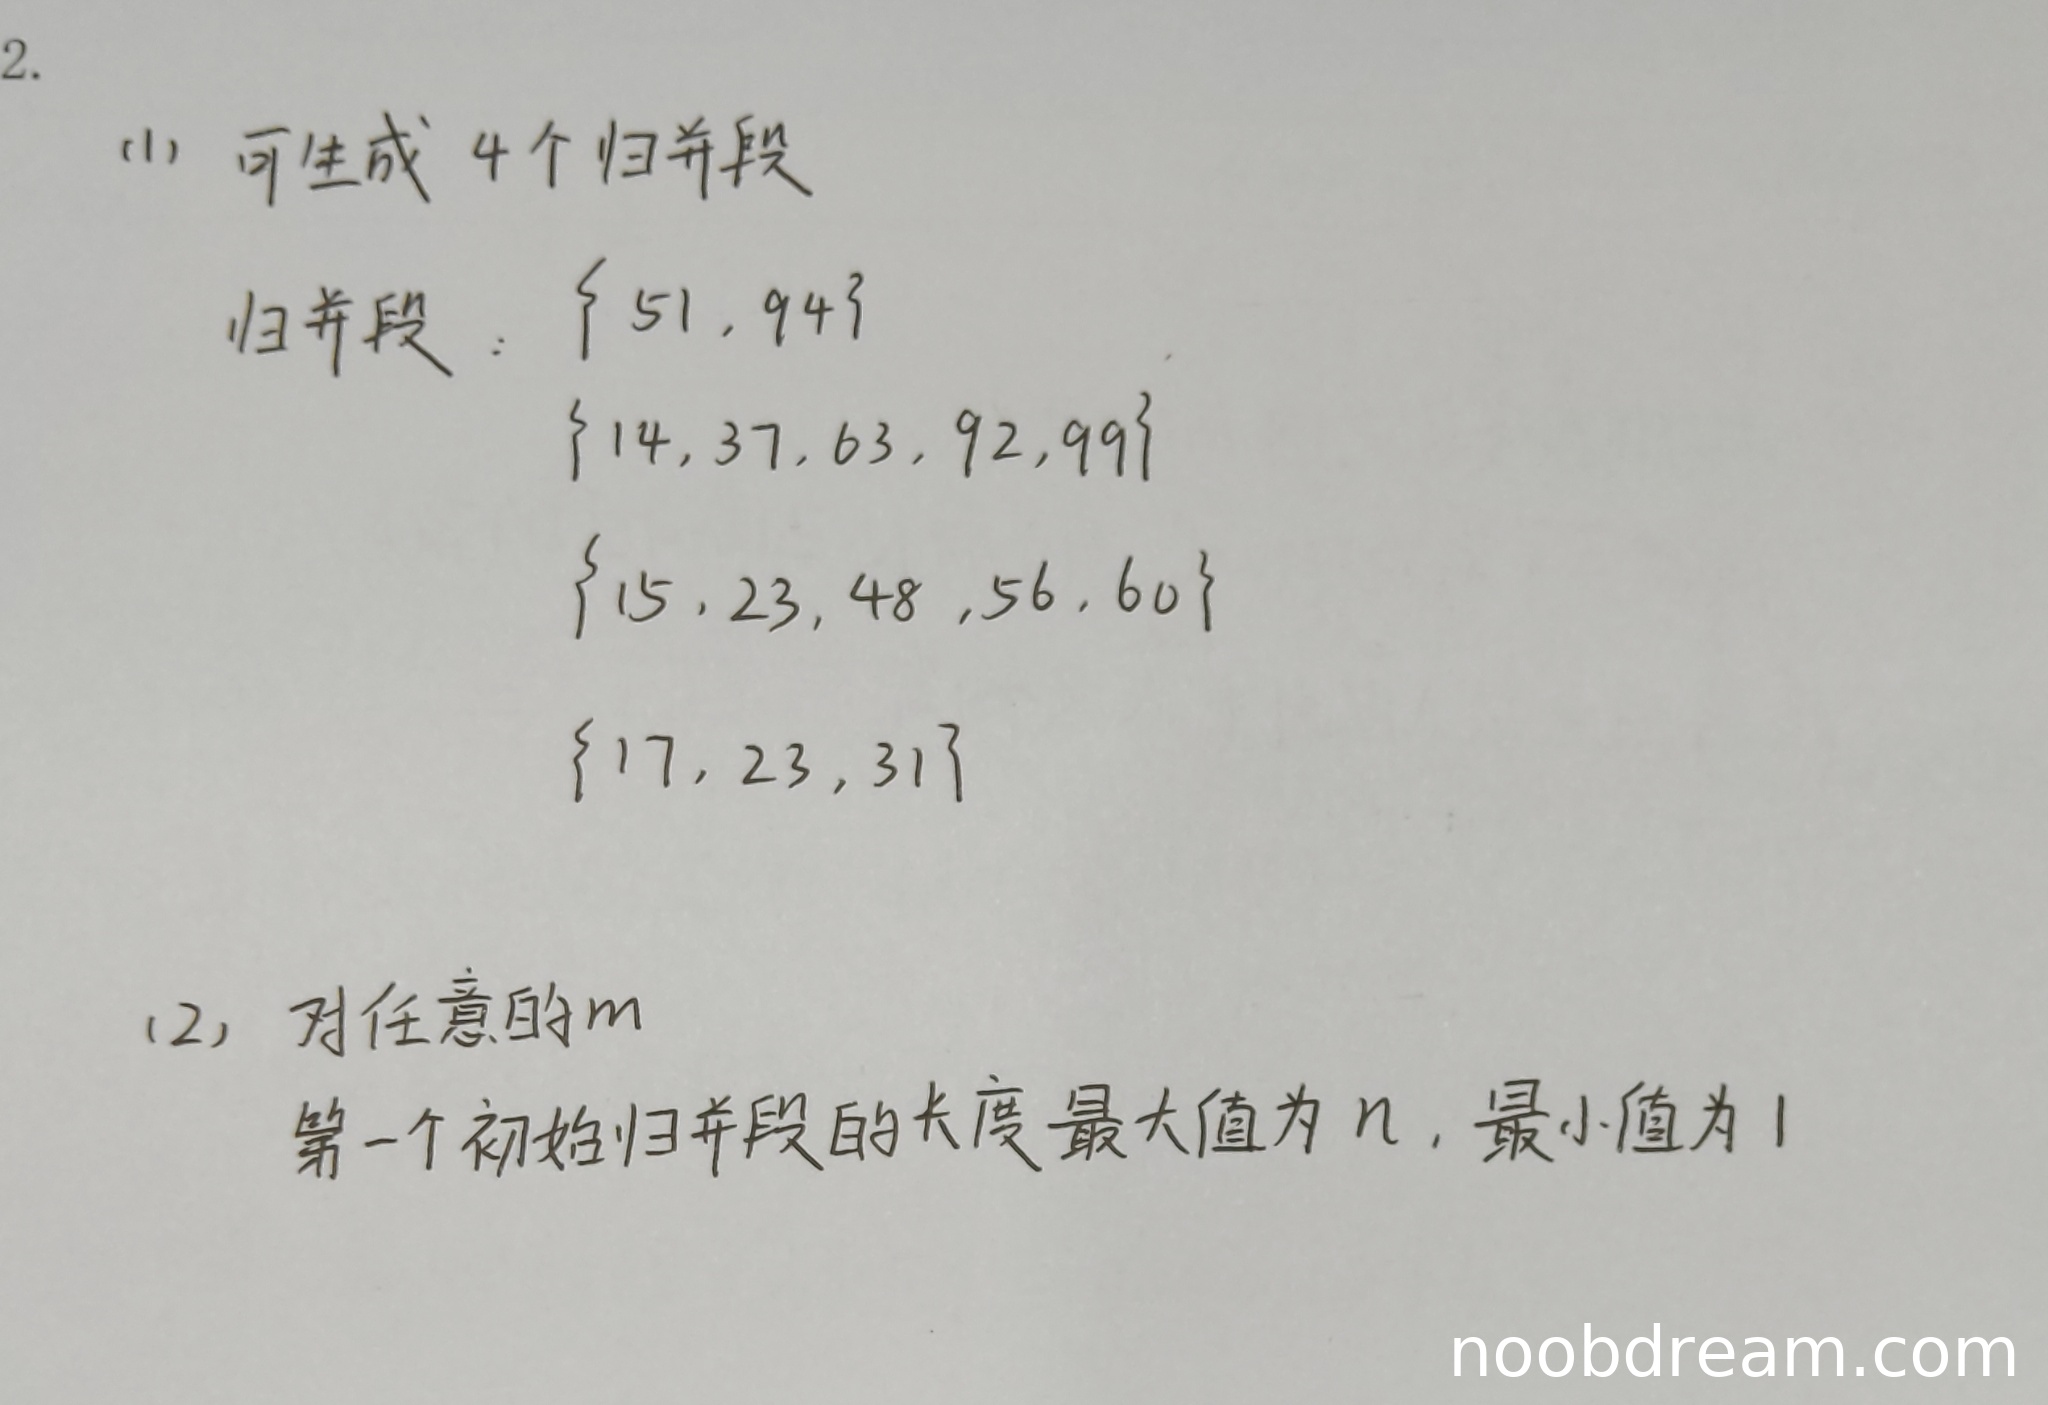 2.
(1) 可生成 4个归并段
归并段: {51, 94}
{14, 37, 63, 92, 99}
{15, 23, 48, 56, 60}
{17, 23, 31}
(2) 对任意的m
第一个初始归并段的长度最大值为n, 最小值为1
noobdream.com